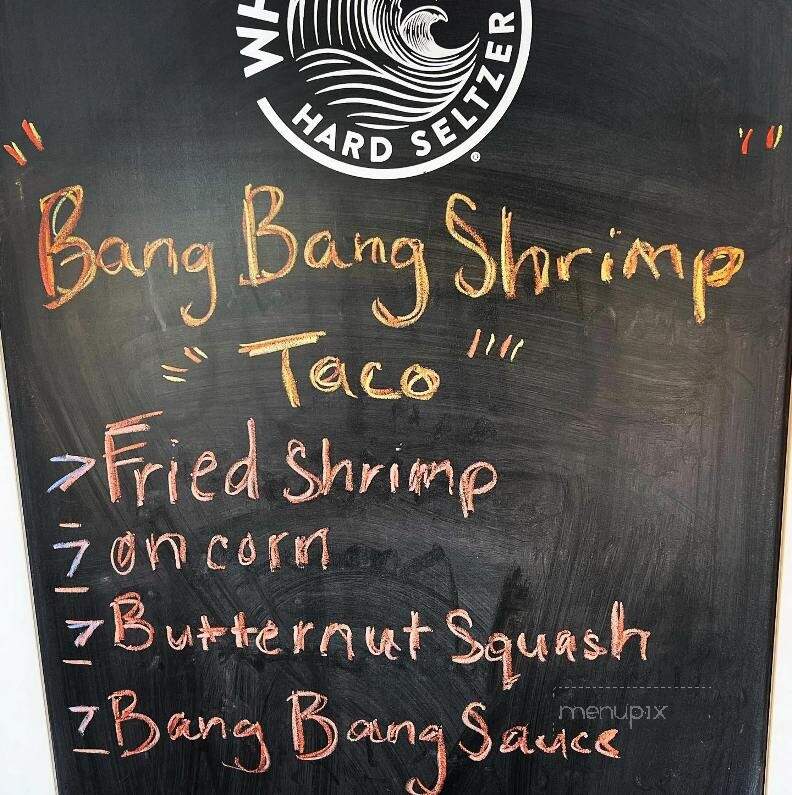 WH
HARD SELTZER®
"Bang Bang Shrimp"
"Taco"
> Fried Shrimp
> on corn
> Butternut Squash
> Bang Bang Sauce
menupix